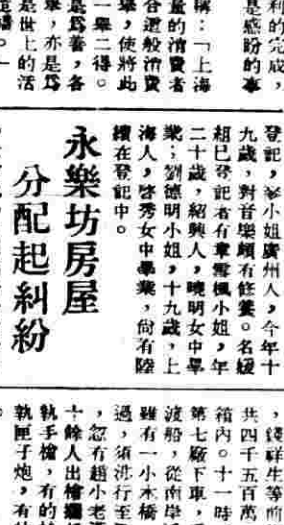 利的完成，
是感盼的事
稱：「上海
量的消費者
合這般消費
舉，使將此
一舉二得。
是爲善，各
舉，亦是爲
是世上的活
登記，爹小姐廣州人，今年十
九歲，對音樂頗有修養。名媛
組已登記者有章雪楓小姐，年
二十歲，紹興人，曉明女中畢
業；劉德明小姐，十九歲，上
海人，啓秀女中畢業，尙有陸
續在登記中。
永樂坊房屋
分配起糾紛
，錢祥生等前
共四千五百萬
箱內。十一時
第七廠下車，
渡船，從南岸
雖有一小木橋
過，須涉行至
，忽有趙小老
十餘人出槍攔
執手槍，有的
執匣子炮，有